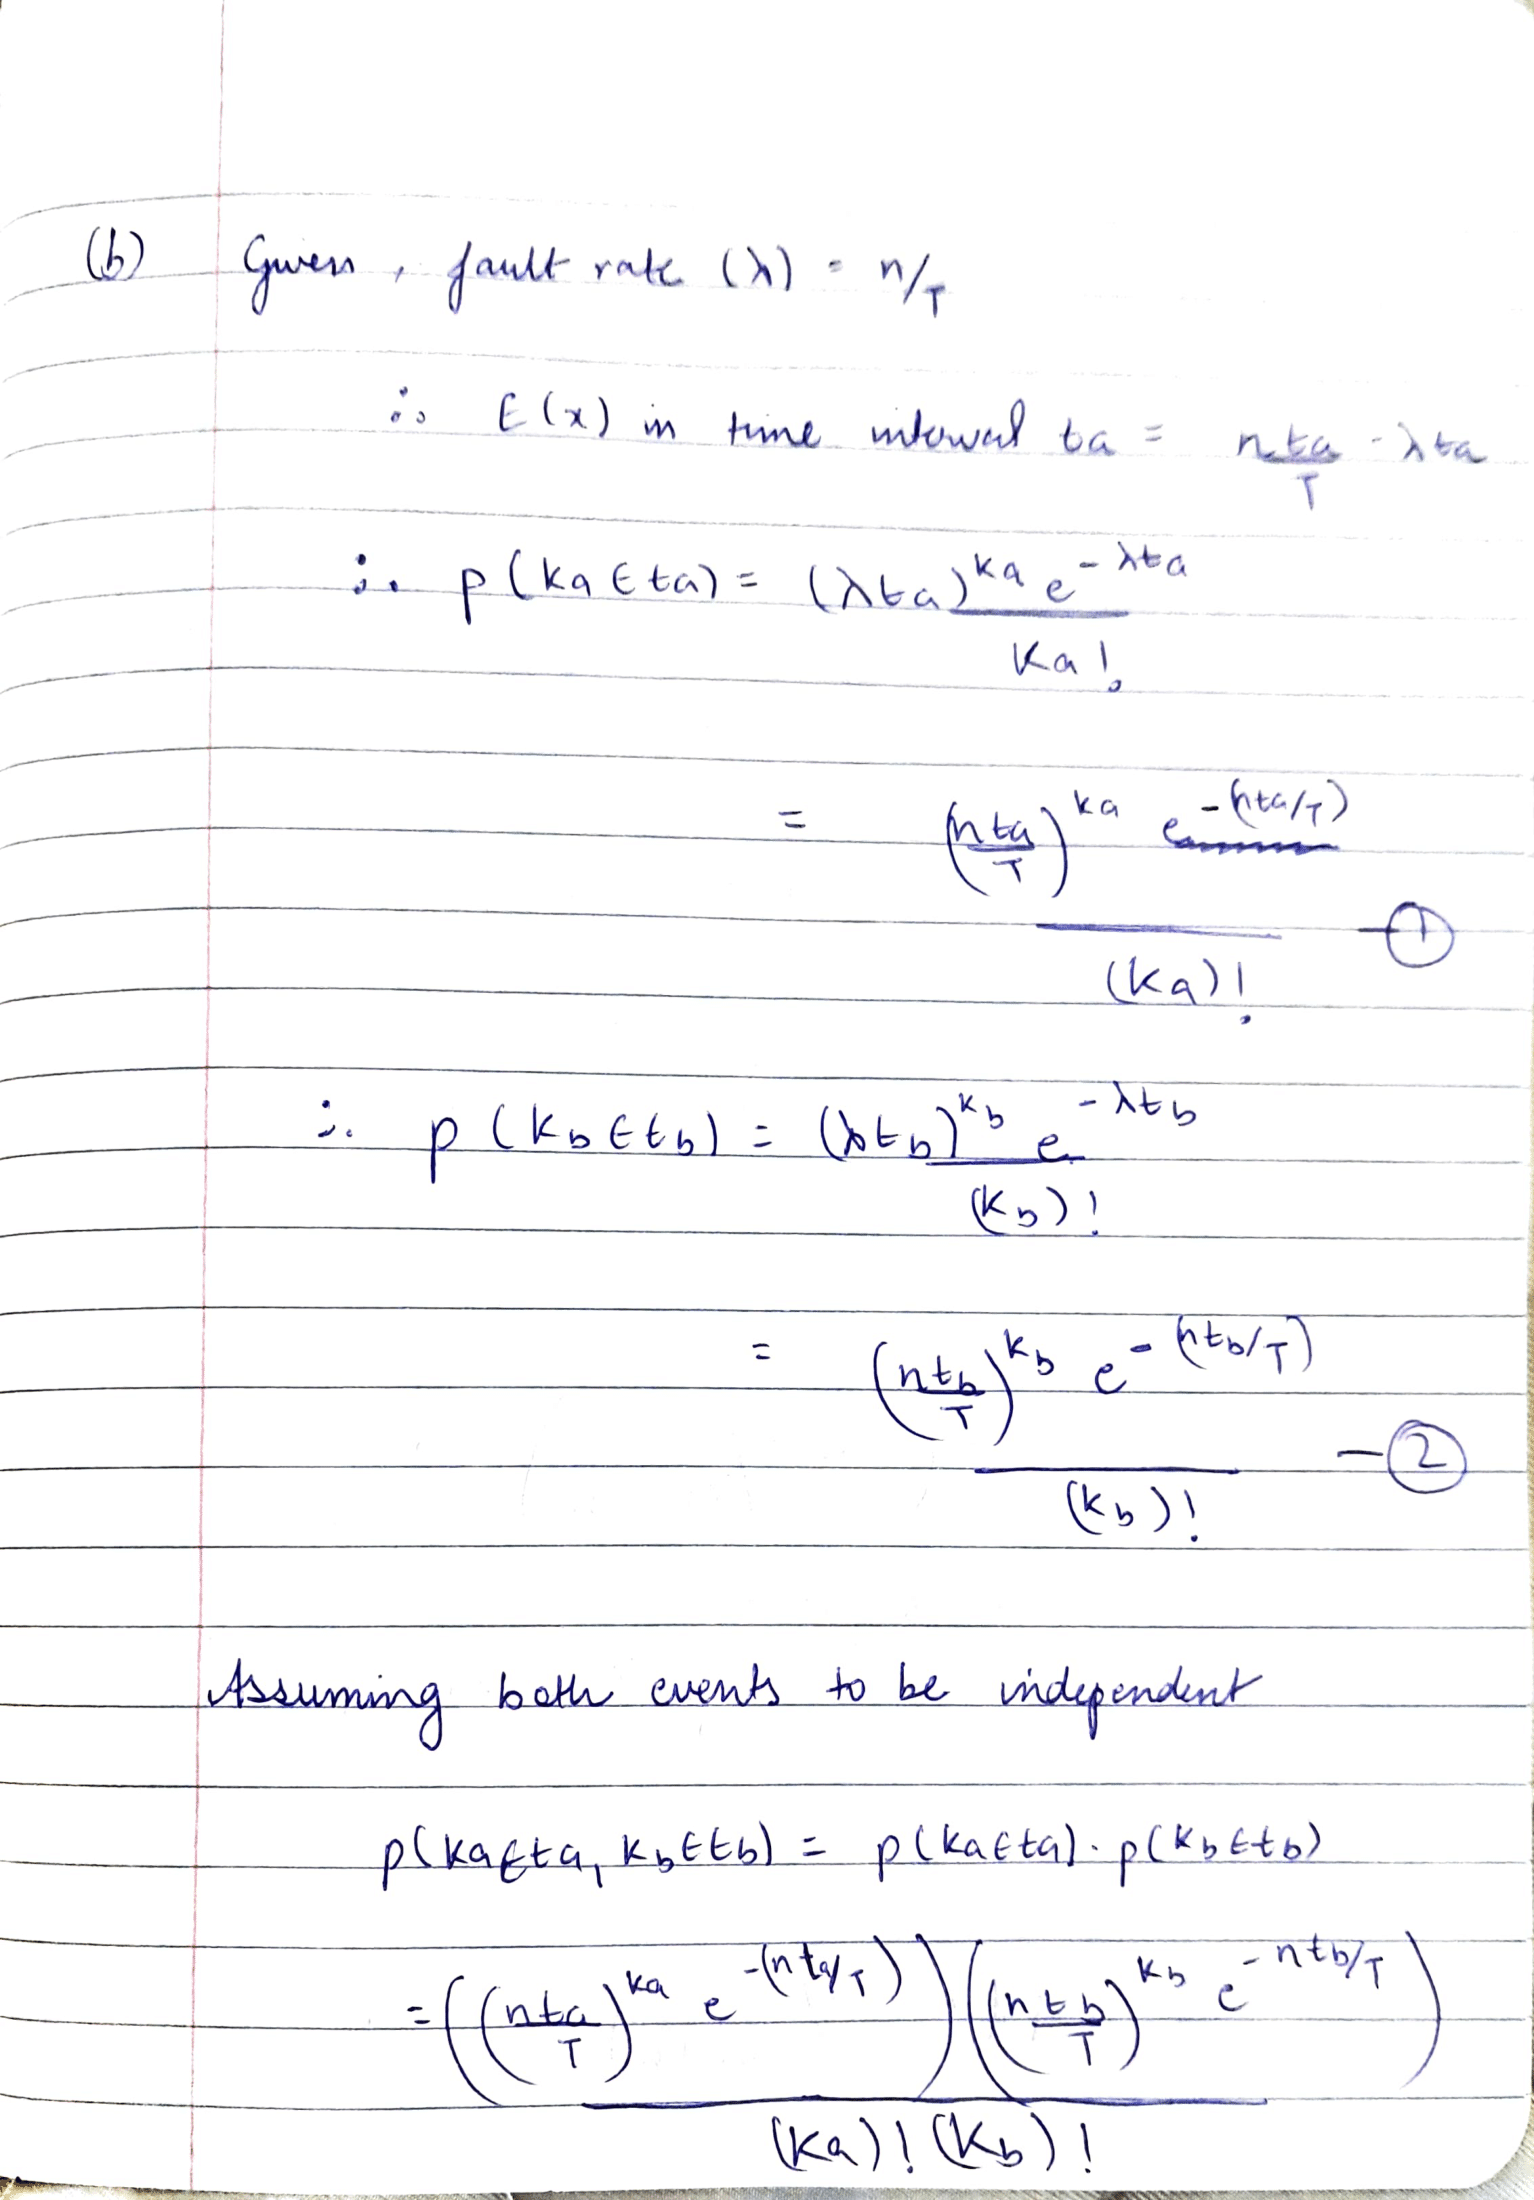 (b) Given, fault rate (λ) = n/T
∴ E(x) in time interval ta = nta/T = λta
∴ p(ka ∈ ta) = (λta)^ka e^-λta / Ka!
= (nta/T)^ka e^-(nta/T) / (Ka)! - ①
∴ p(kb ∈ tb) = (λtb)^kb e^-λtb / (Kb)!
= (ntb/T)^kb e^-(ntb/T) / (kb)! - ②
Assuming both events to be independent
p(ka∈ta, kb∈tb) = p(ka∈ta).p(kb∈tb)
= ((nta/T)^ka e^-(nta/T)) ((ntb/T)^kb e^-ntb/T) / (Ka)! (Kb)!